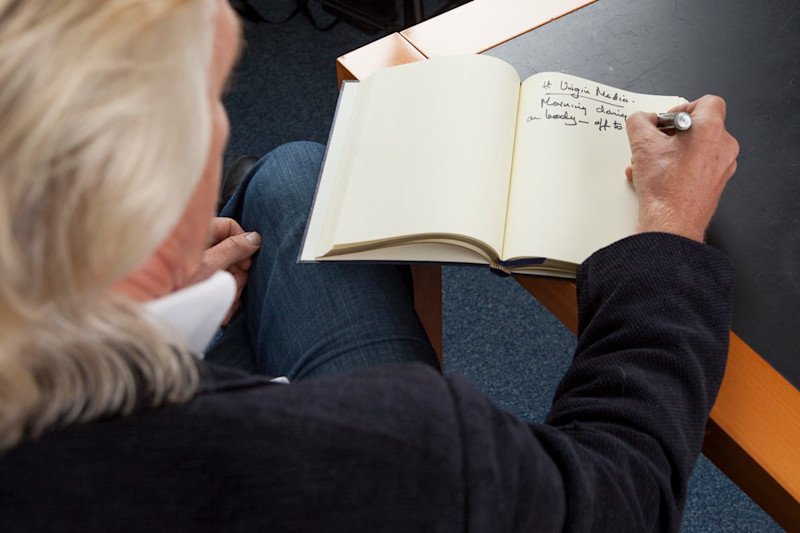 # Virgin Media.
Morning
on body – off to